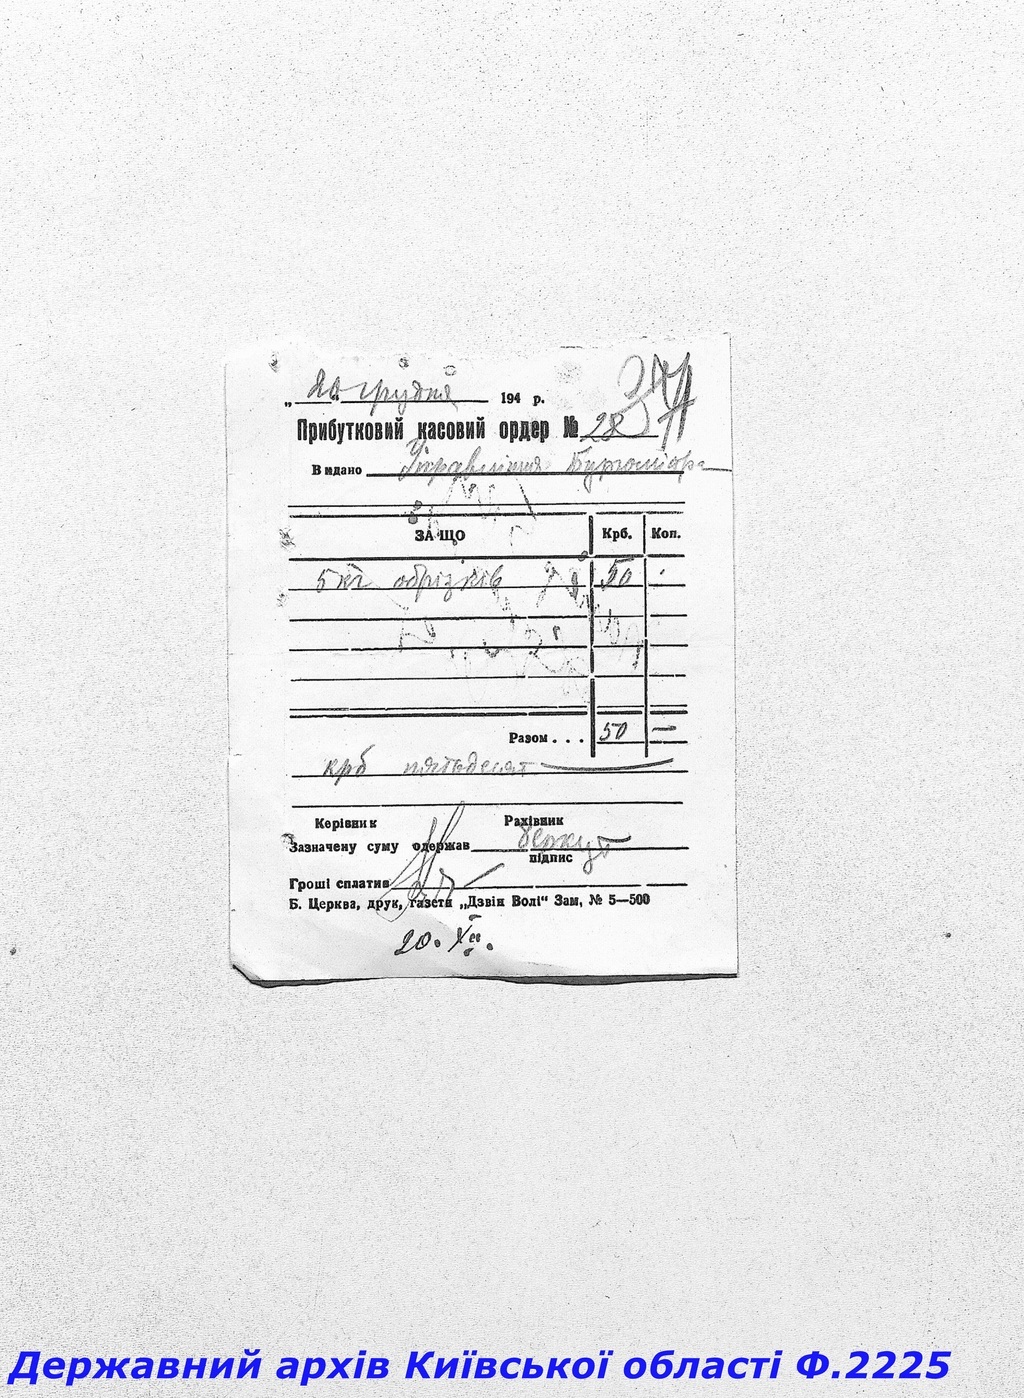 „20“ грудня 194 р.
Прибутковий касовий ордер № 28
Видано Управління Бургомістра
ЗА ЩО Крб. Коп.
5 кг обрізків 50
Разом . . . 50 —
крб пятьдесят
Керівник Рахівник
Зазначену суму одержав
підпис
Гроші сплатив
Б. Церква, друк, газети „Дзвін Волі“ Зам, № 5—500
20. XII.
Державний архів Київської області Ф.2225